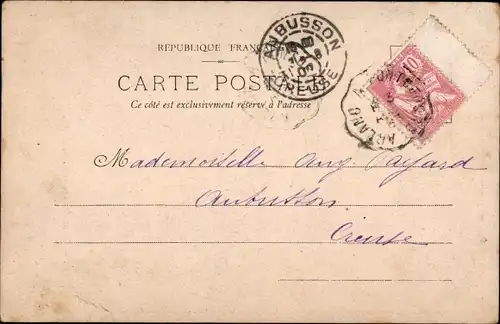 RÉPUBLIQUE FRANÇAISE
CARTE POSTALE
Ce côté est exclusivement réservé à l'adresse
AUBUSSON
CREUSE
10
ARLANC A
Mademoiselle Aug. Payard
Aubusson
Creuse